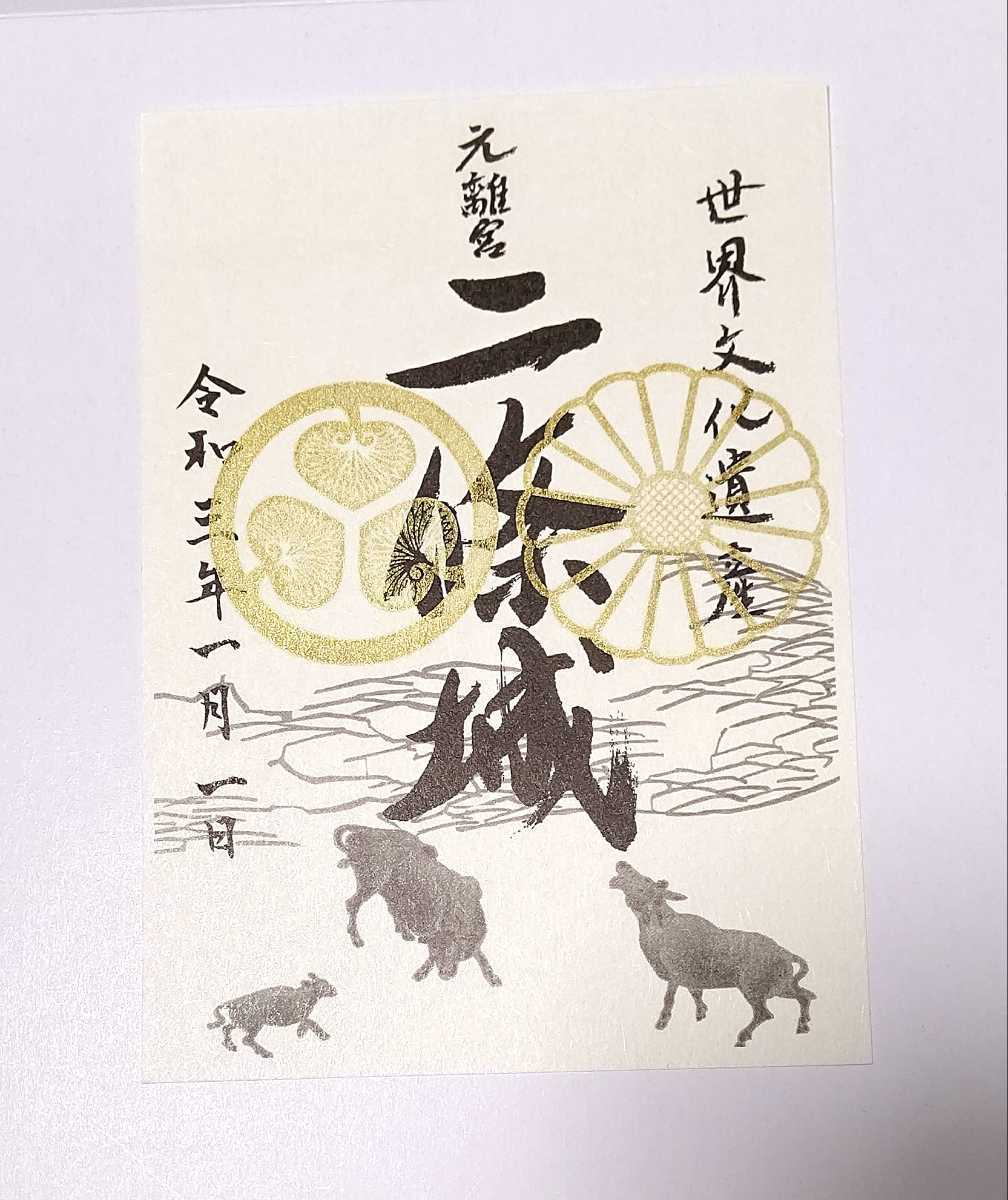 世界文化遺産
元離宮
二條城
令和三年一月一日